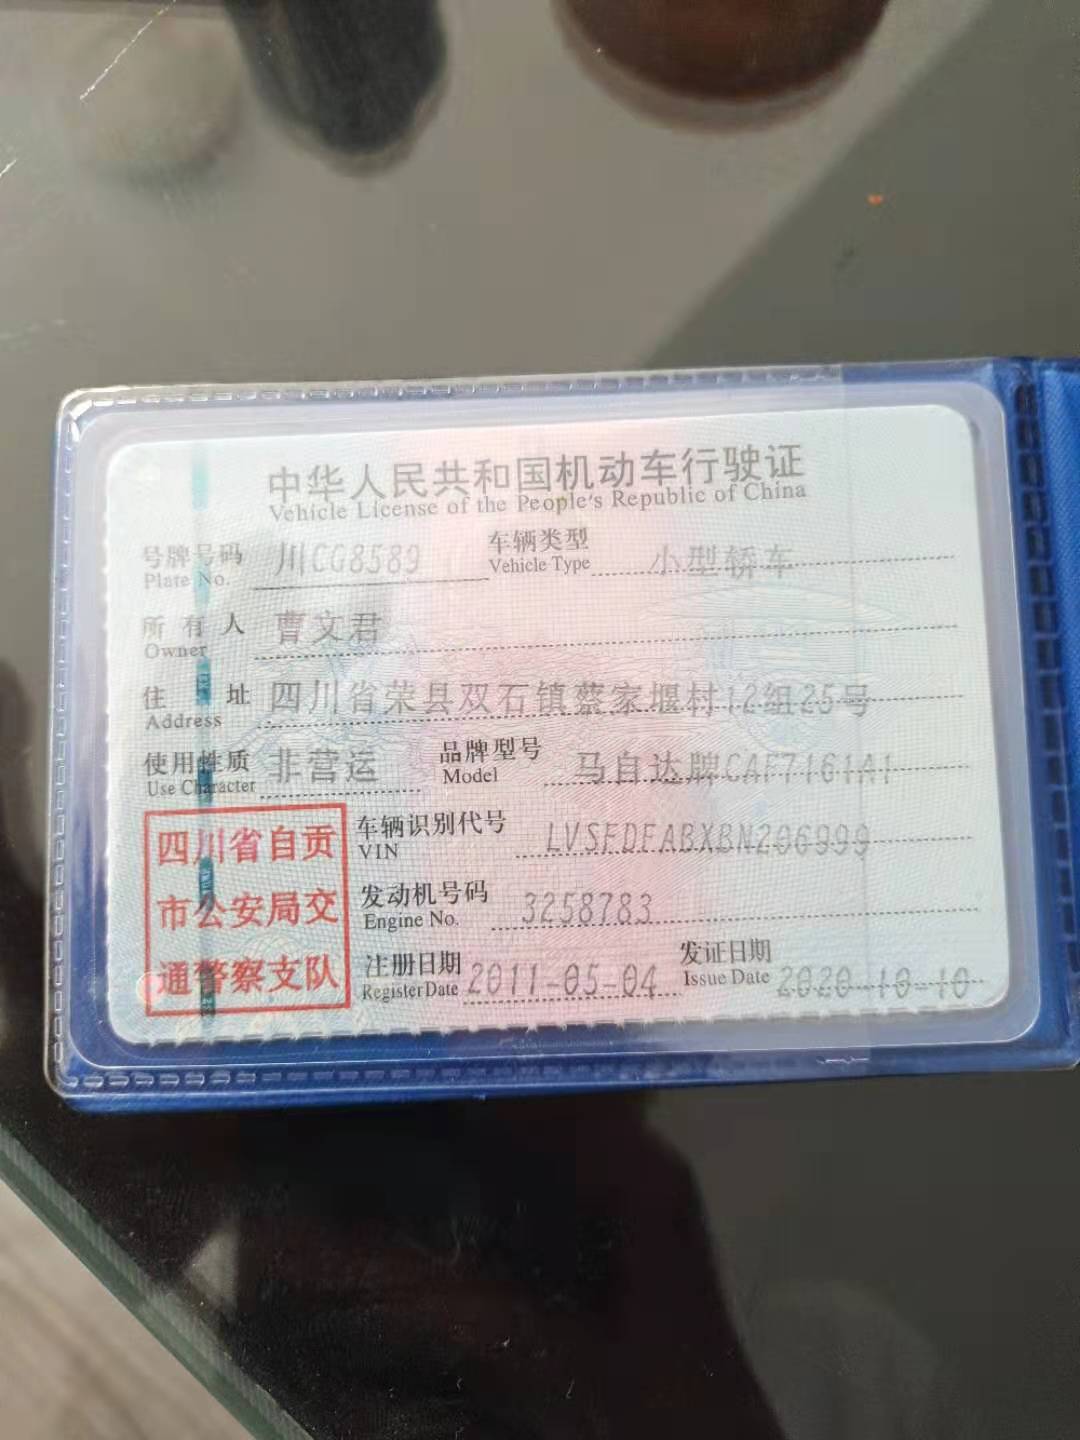 中华人民共和国机动车行驶证
Vehicle License of the People's Republic of China
号牌号码 川CG8589 车辆类型 小型轿车
Plate No. Vehicle Type
所有人 曹文君
Owner
住址 四川省荣县双石镇蔡家堰村12组25号
Address
使用性质 非营运 品牌型号 马自达牌CAF7161A1
Use Character Model
四川省自贡
市公安局交
通警察支队
车辆识别代号 LVSFDFABXBN206999
VIN
发动机号码 3258783
Engine No.
注册日期 2011-05-04 发证日期 2020-10-10
Register Date Issue Date